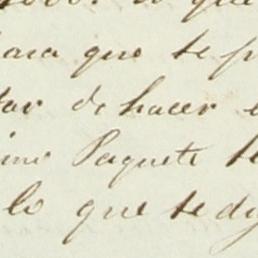 que
para que te p
tar de hacer e
imo Paquete te
lo que te dig